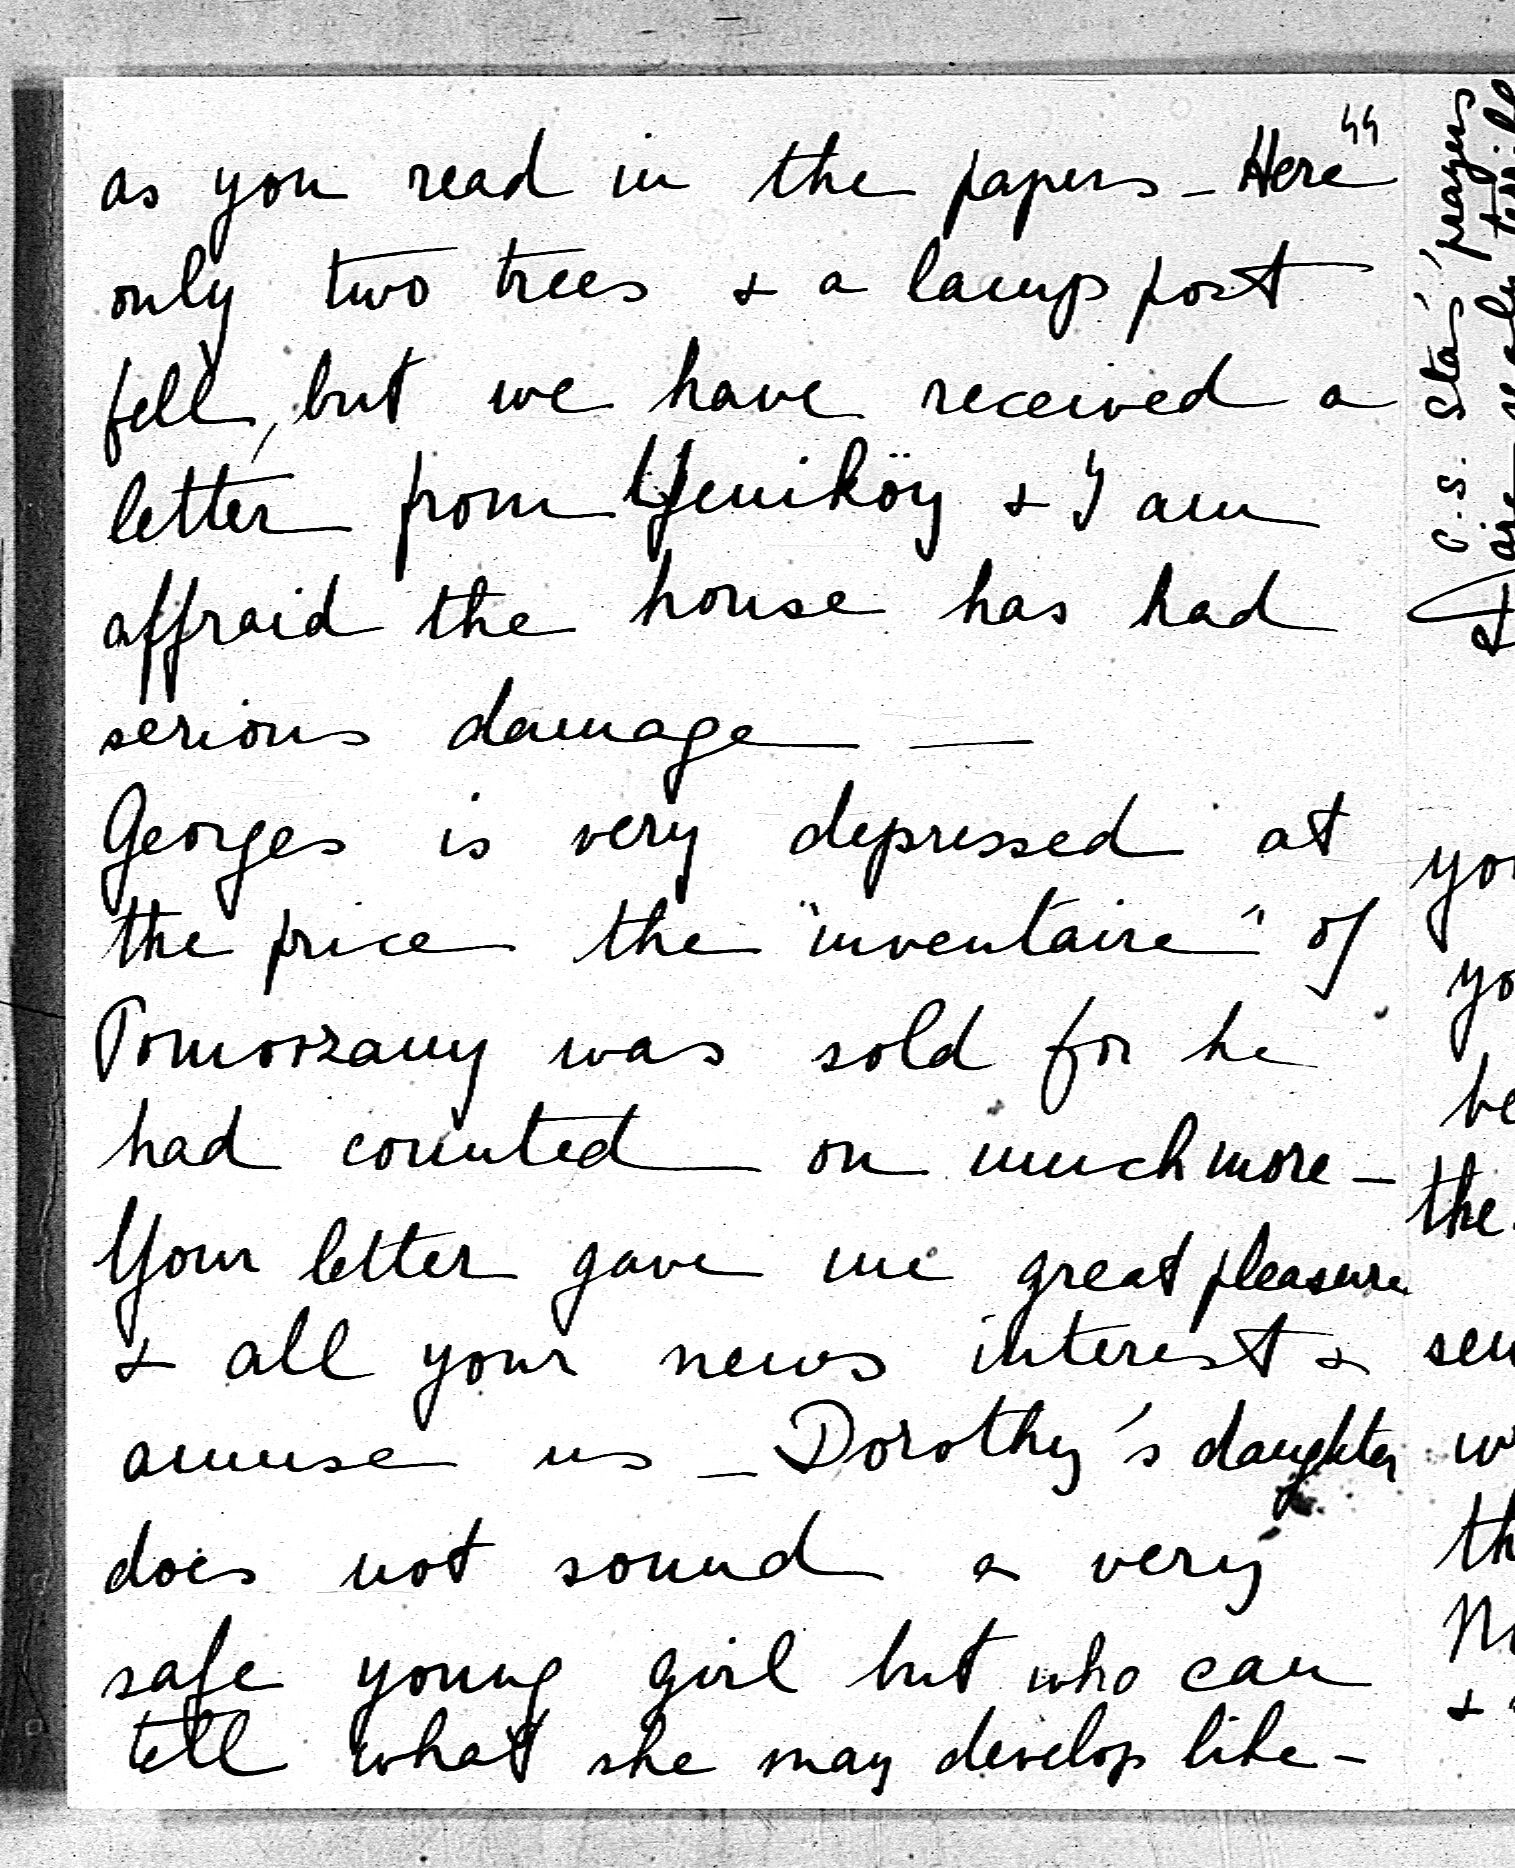 as you read in the papers - Here
only two trees & a lamp post
fell, but we have received a
letter from Yeniköy & I am
affraid the house has had
serious damage —
Georges is very depressed at
the price the "inventaire" of
Pomorzany was sold for he
had counted on much more -
Your letter gave me great pleasure
& all your news interest &
amuse us - Dorothy's daughter
does not sound a very
safe young girl but who can
tell what she may develop like -
C.S. Sta' prayers
the